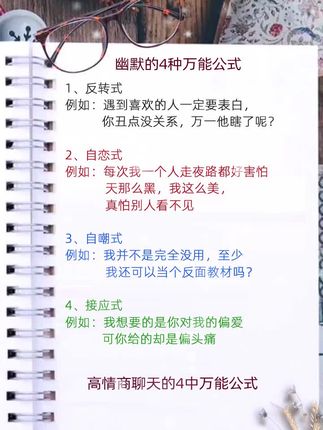 幽默的4种万能公式
1、反转式
例如：遇到喜欢的人一定要表白，
你丑点没关系，万一他瞎了呢？
2、自恋式
例如：每次我一个人走夜路都好害怕
天那么黑，我这么美，
真怕别人看不见
3、自嘲式
例如：我并不是完全没用，至少
我还可以当个反面教材吗？
4、接应式
例如：我想要的是你对我的偏爱
可你给的却是偏头痛
高情商聊天的4中万能公式